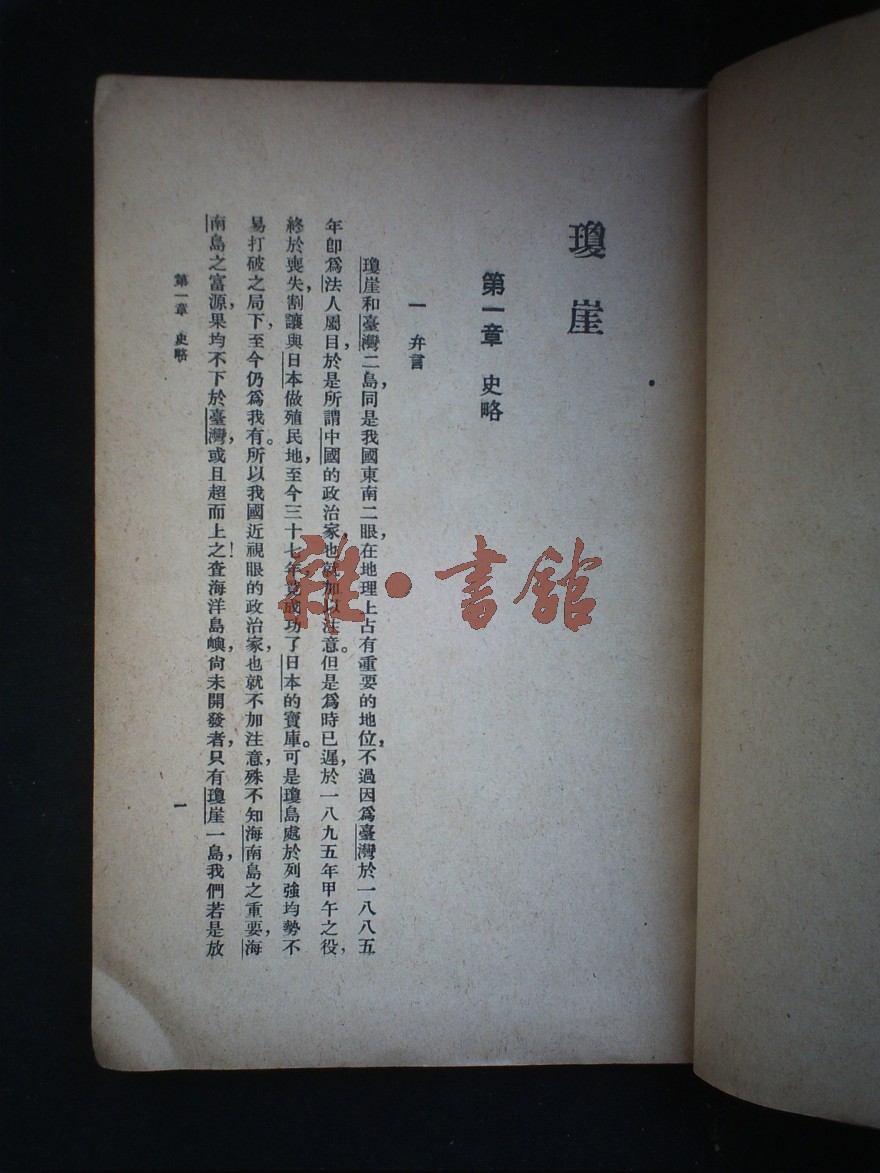 瓊崖
第一章 史略
一 弁言
瓊崖和臺灣二島，同是我國東南二眼，在地理上占有重要的地位，不過因爲臺灣於一八八五
年即爲法人屬目，於是所謂中國的政治家，也就加以注意。但是爲時已遲，於一八九五年甲午之役，
終於喪失，割讓與日本做殖民地，至今三十七年，竟成功了日本的寶庫。可是瓊島處於列強均勢不
易打破之局下，至今仍爲我有。所以我國近視眼的政治家，也就不加注意，殊不知海南島之重要，海
南島之富源，果均不下於臺灣，或且超而上之！查海洋島嶼，尙未開發者，只有瓊崖一島，我們若是放
第一章 史略
一
雜·書館